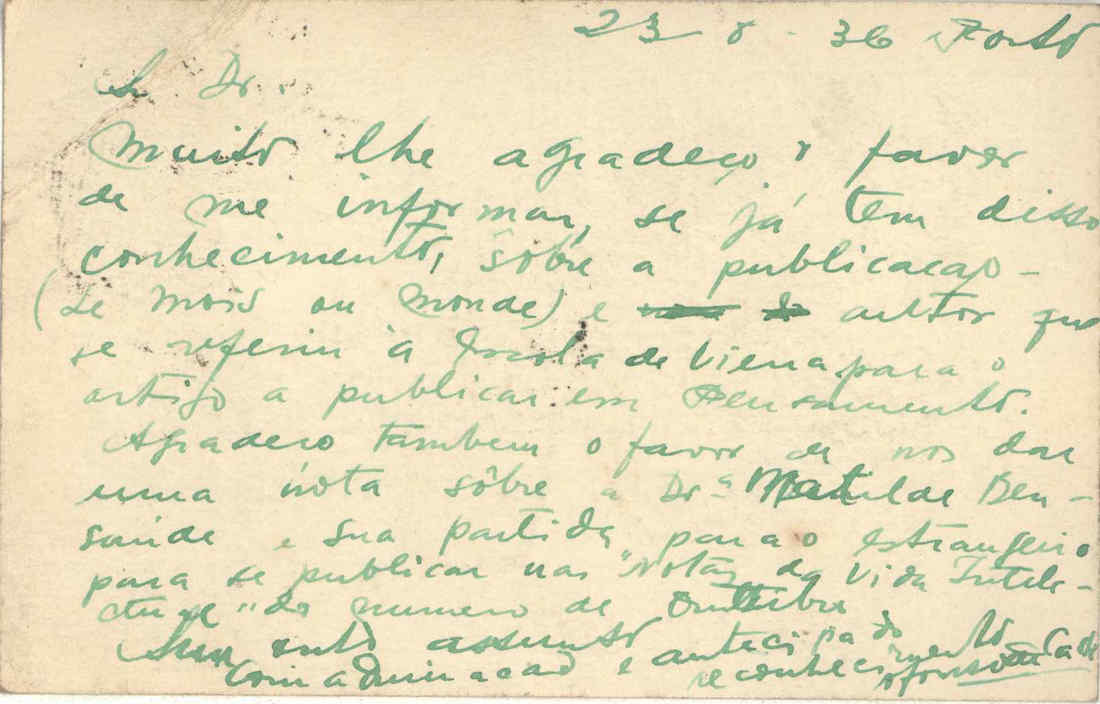 23 8 - 36 Porto
Sr Dr.
Muito lhe agradeço o favor
de me informar, se já tem disso
conhecimento, sôbre a publicacão -
(se Mois ou Monde) e autor que
se referiu à Escola de Viena para o
artigo a publicar em Pensamento.
Agradeco tambem o favor de nos dar
uma nota sôbre a Drª Matilde Ben-
saúde e sua partida para o estrangeiro
para se publicar nas "Notas da Vida Intele-
ctual" do numero de Outubro
Sem outro assunto antecipado
com admiracão e reconhecimento